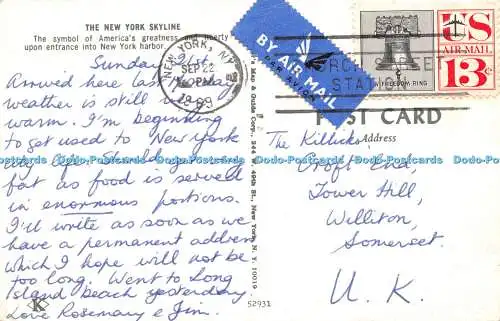 THE NEW YORK SKYLINE
The symbol of America's greatness and liberty
upon entrance into New York harbor.
Sunday 21st
Arrived here last Monday
weather is still v.
warm. I'm beginning
to get used to New York
life. Shall get
fat as food is served
in enormous portions.
I'll write as soon as we
have a permanent address
which I hope will not be
too long. Went to Long
Island beach yesterday.
Love Rosemary & Jim.
K
NEW YORK, N.Y.
SEP 22
PM
1969
BY AIR MAIL
PAR AVION
CHURCH STREET
STATION
LET FREEDOM RING
US
AIR MAIL
13¢
POST CARD
Address
The Killicks
Croft End,
Tower Hill,
Williton,
Somerset.
U.K.
Map & Guide Corp., 244 W. 49th St., New York, N. Y. 10019
52931
Dodo-Postcards Dodo-Postcards Dodo-Postcards Dodo-Postcards